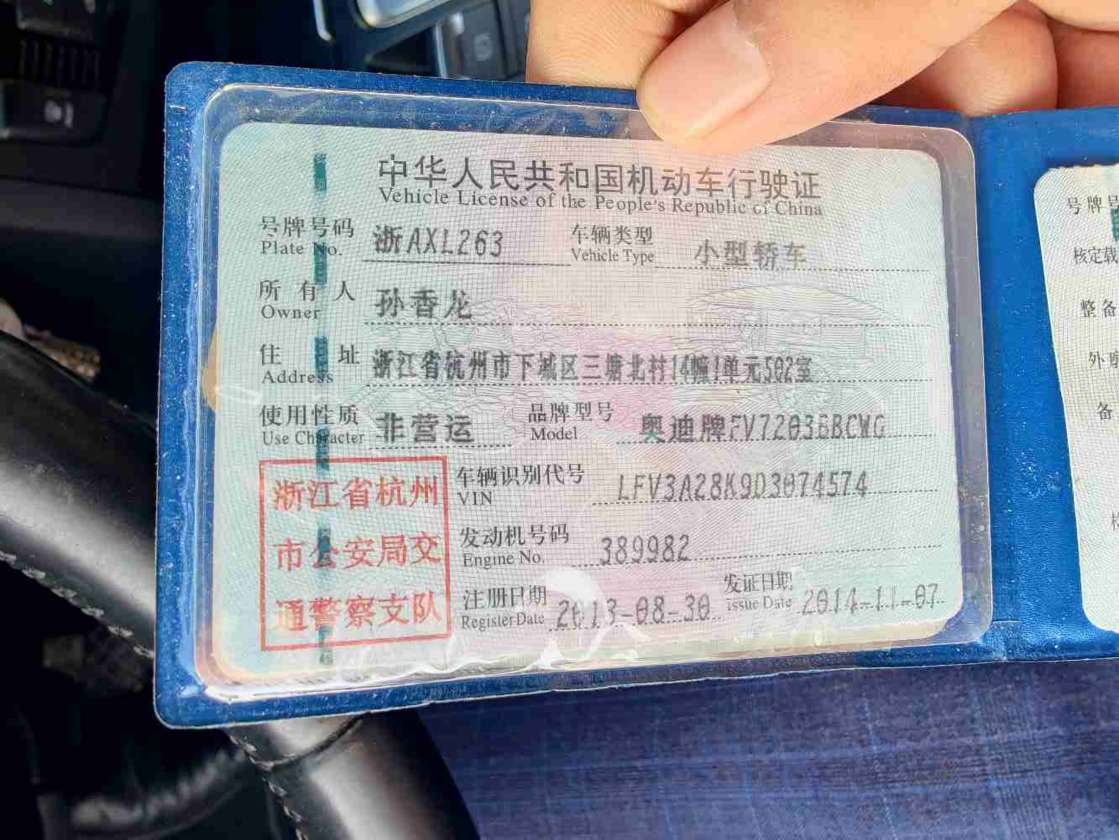 中华人民共和国机动车行驶证
Vehicle License of the People's Republic of China
号牌号码 浙AXL263 车辆类型 小型轿车
Plate No. Vehicle Type
所有人 孙香龙
Owner
住址 浙江省杭州市下城区三塘北村14幢1单元502室
Address
使用性质 非营运 品牌型号 奥迪牌FV72036BCWG
Use Character Model
浙江省杭州
市公安局交
通警察支队
车辆识别代号 LFV3A28K9D3074574
VIN
发动机号码 389982
Engine No.
注册日期 2013-08-30 发证日期 2014-11-07
Register Date Issue Date
号牌号
核定载
整备
外廓
备